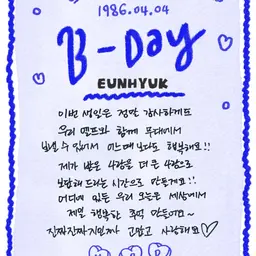 1986.04.04
B-Day
EUNHYUK
이번 생일은 정말 감사하게도
우리 엘프와 함께 무대에서
보낼 수 있어서 어느때보다도 행복해요!!
제가 받은 사랑을 더 큰 사랑으로
보답해 드리는 시간으로 만들게요!!
어디에 있든 우리 모두는 세상에서
제일 행복한 추억 만들어요~
진짜진짜진짜 고맙고 사랑해요♡